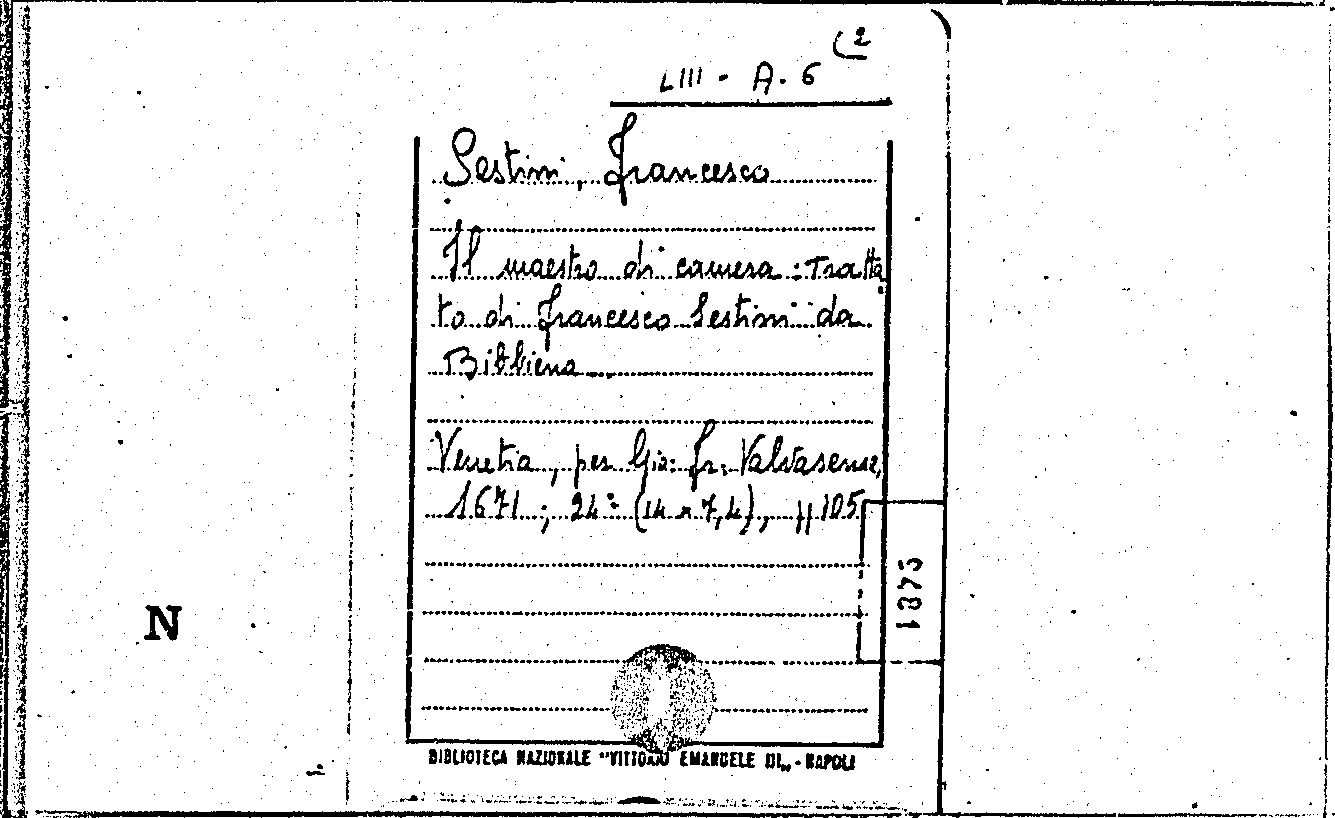 (2
LIII - A. 6
Sestini, Francesco
Il maestro di camera : Tratta
to di Francesco Sestini da
Bibbiena ...
Venetia, per Gio: Fr: Valvasense,
1671 ; 24º (14 x 7,4), pp 105
1875
N
BIBLIOTECA NAZIONALE "VITTORIO EMANUELE III„ - NAPOLI